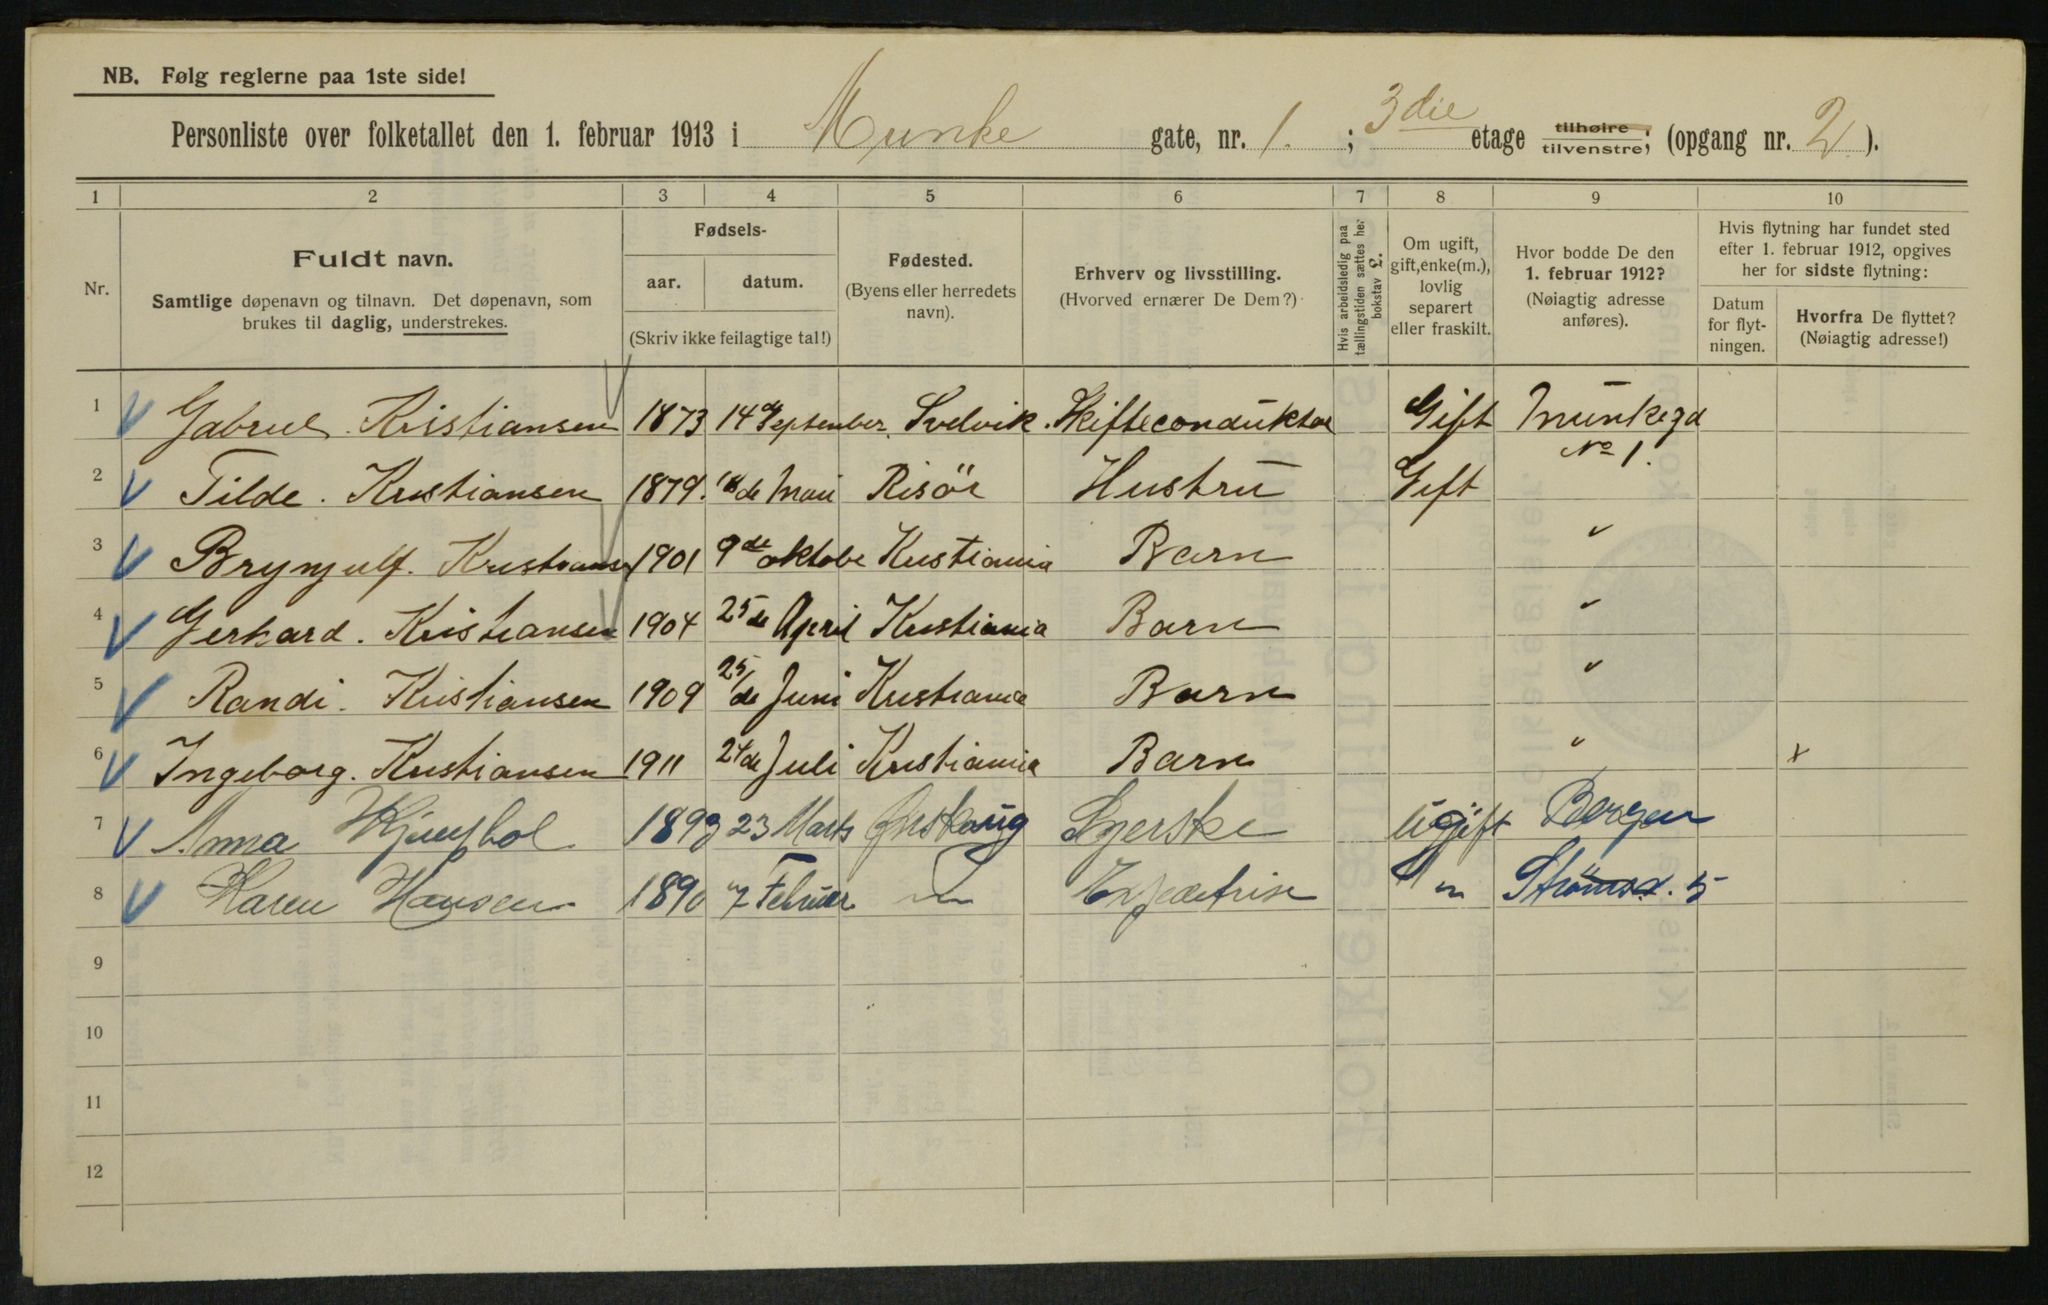 NB. Følg reglerne paa 1ste side!
Personliste over folketallet den 1. februar 1913 i Munke gate, nr. 1. ; 3die etage tilhøire tilvenstre; (opgang nr. 2).
1 2 3 4 5 6 7 8 9 10
Nr.
Fuldt navn.
Samtlige døpenavn og tilnavn. Det døpenavn, som
brukes til daglig, understrekes.
Fødsels-
aar. datum.
(Skriv ikke feilagtige tal!)
Fødested.
(Byens eller herredets
navn).
Erhverv og livsstilling.
(Hvorved ernærer De Dem?)
Hvis arbeidsledig paa
tællingstiden sættes her
bokstav L.
Om ugift,
gift, enke(m.),
lovlig
separert
eller fraskilt.
Hvor bodde De den
1. februar 1912?
(Nøiagtig adresse
anføres).
Hvis flytning har fundet sted
efter 1. februar 1912, opgives
her for sidste flytning:
Datum
for flyt-
ningen.
Hvorfra De flyttet?
(Nøiagtig adresse!)
1 Gabriel Kristiansen 1873 14de September Svelvik. Skifteconduktør Gift Munkegd
No 1.
2 Tilde. Kristiansen 1879. de Mai Risör Hustru Gift
3 Brynjulf. Kristianse 1901 9de oktobe Kristiania Barn "
4 Gerhard. Kristiansen 1904 25de April Kristiania Barn "
5 Randi. Kristiansen 1909 25/de Juni Kristiania Barn "
6 Ingeborg. Kristiansen 1911 24de Juli Kristiania Barn " x
7 Anna 1893 23 Marts Syerske Ugift Bergen
8 Karen Hansen 1890 7 Februar " Expeditrise " Strømsd. 5
9
10
11
12